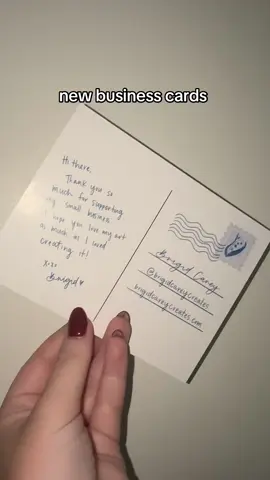 new business cards
Hi there,
Thank you so
much for supporting
my small business
I hope you love my art
as much as I loved
creating it!
xoxo
Brigid ♥
Brigid Carey
@brigidcareycreates
brigidcareycreates.com